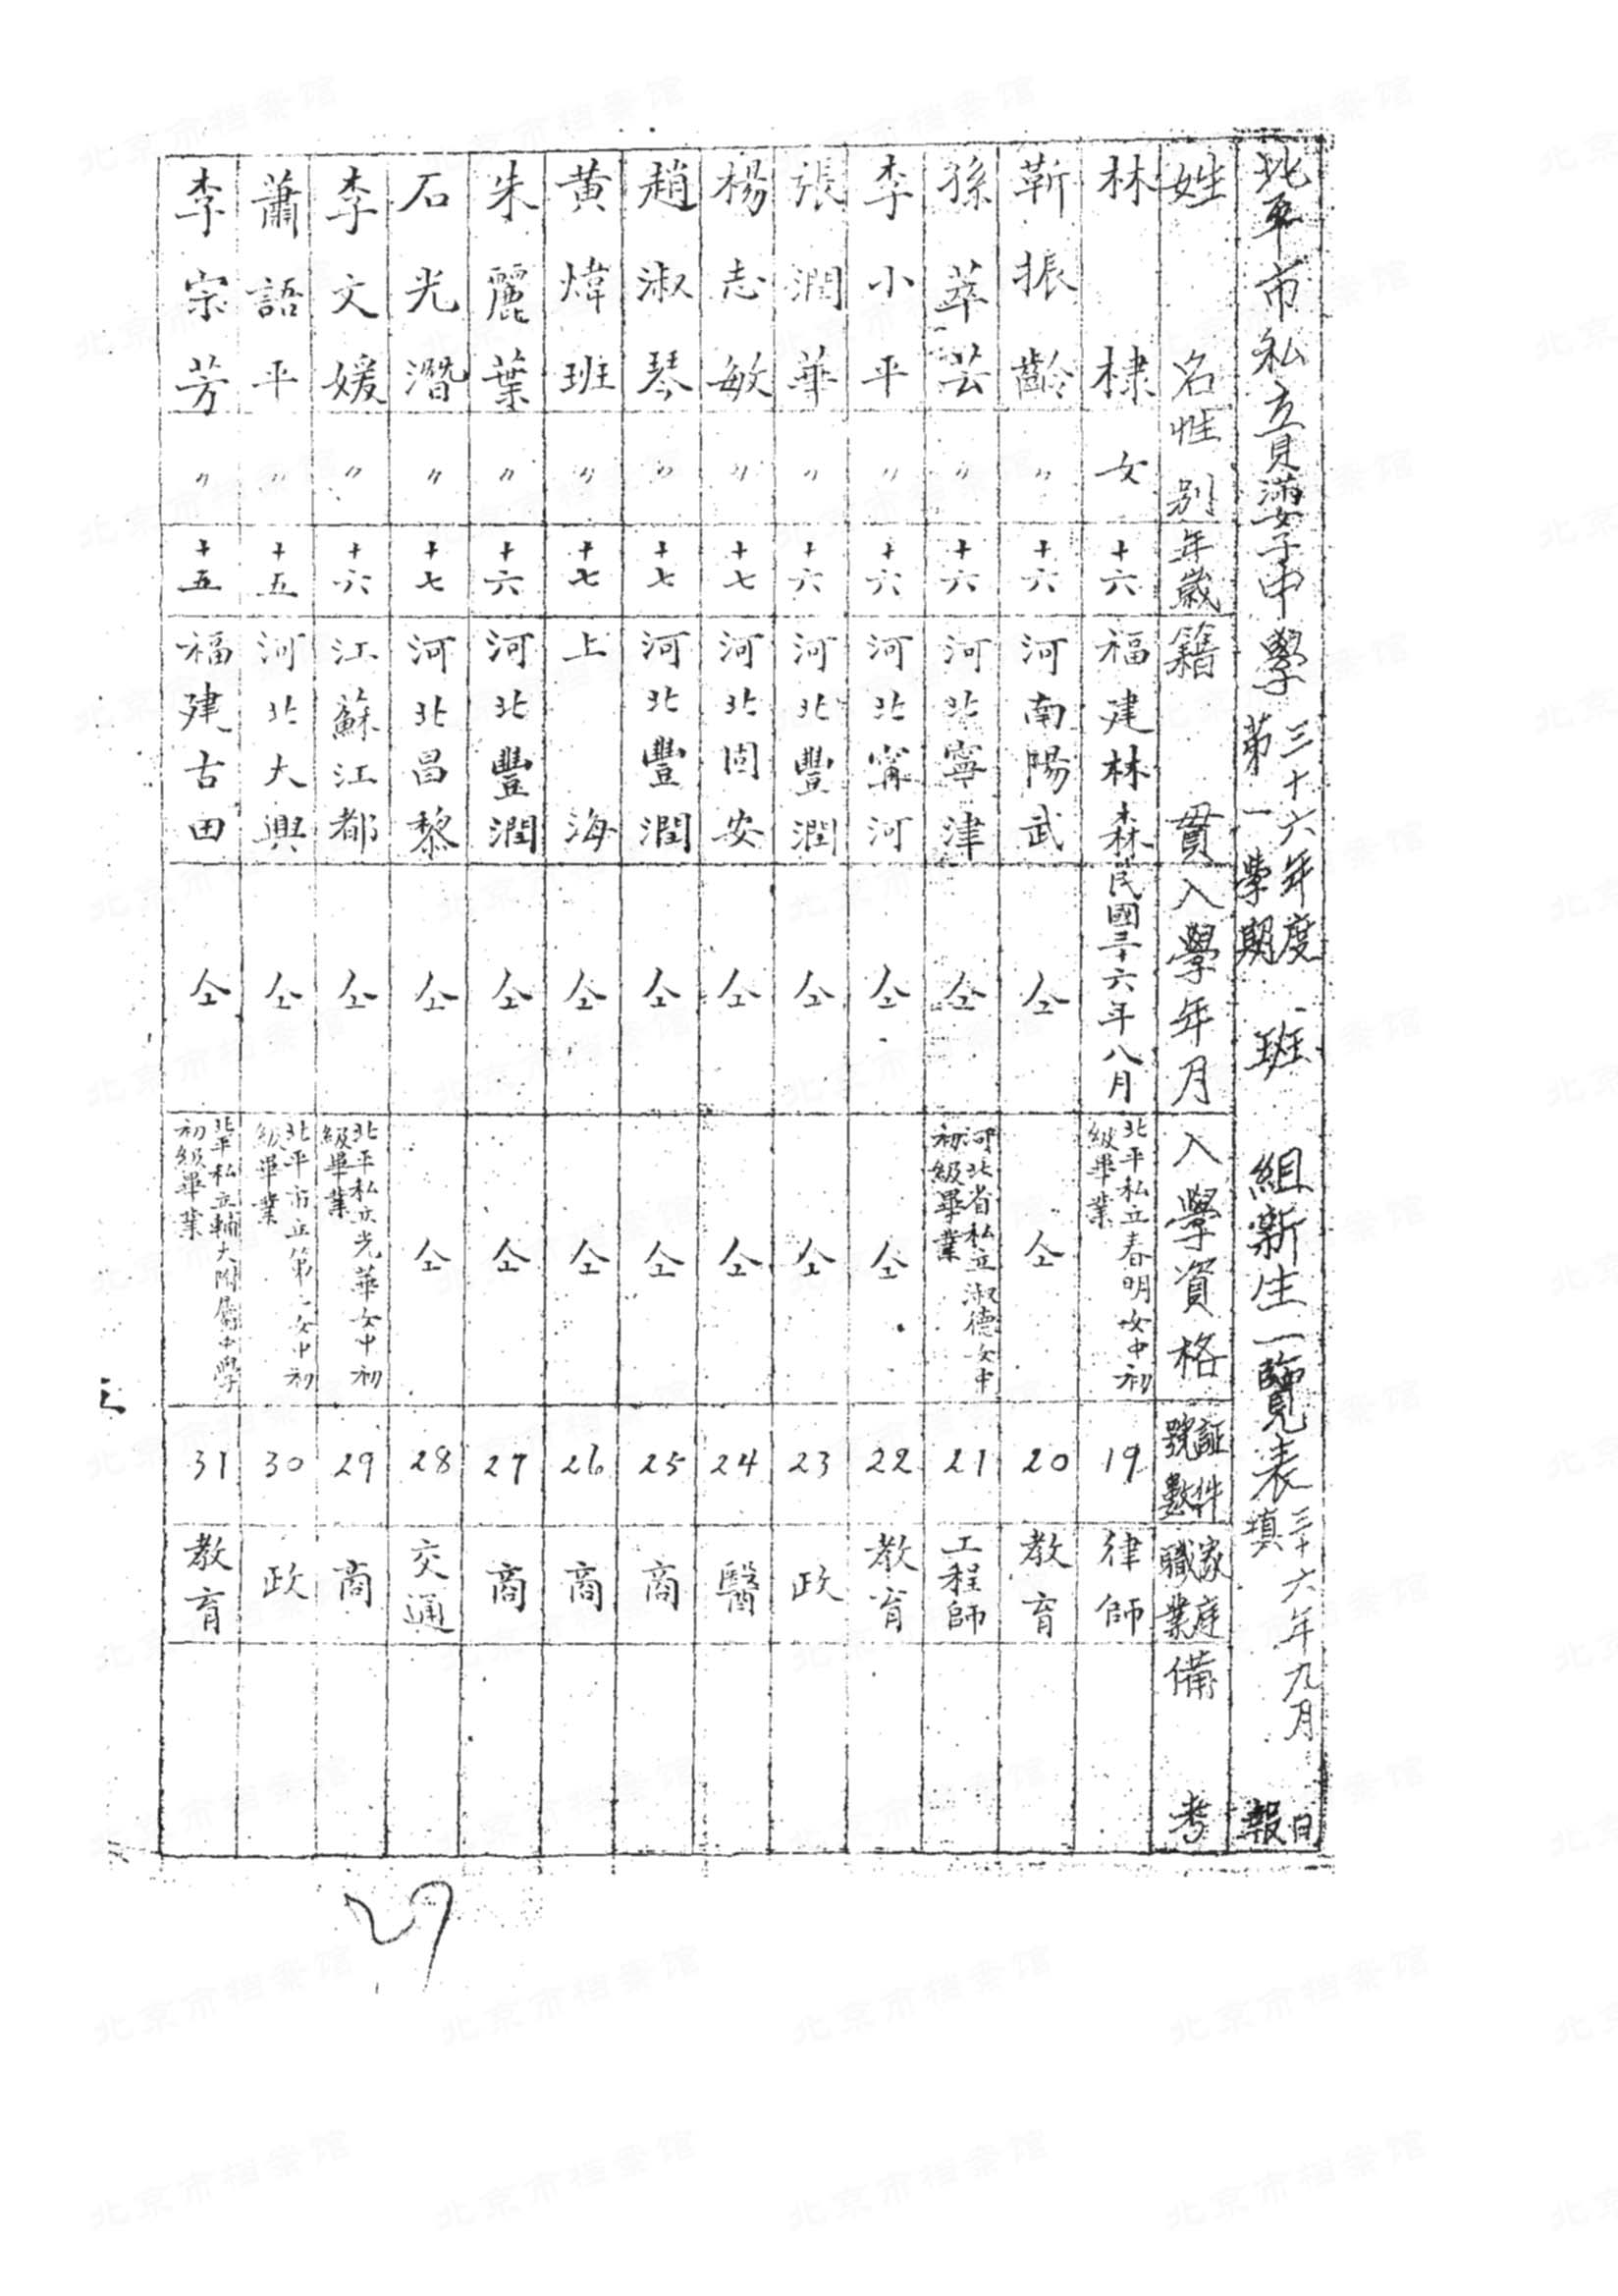 北平市私立貝滿女子中學 三十六年度第一學期 班 組新生一覽表 三十六年九月 日填報
姓名 性別 年歲 籍貫 入學年月 入學資格 証件號數 家庭職業 備考
林棣 女 十六 福建林森 民國三十六年八月 北平私立春明女中初級畢業 19 律師
靳振齡 〃 十六 河南陽武 仝 仝 20 教育
孫萃芸 〃 十六 河北寧津 仝 河北省私立淑德女中初級畢業 21 工程師
李小平 〃 十六 河北甯河 仝 仝 22 教育
張潤華 〃 十六 河北豐潤 仝 仝 23 政
楊志敏 〃 十七 河北固安 仝 仝 24 醫
趙淑琴 〃 十七 河北豐潤 仝 仝 25 商
黃煒班 〃 十七 上海 仝 仝 26 商
朱麗葉 〃 十六 河北豐潤 仝 仝 27 商
石光潛 〃 十七 河北昌黎 仝 仝 28 交通
李文媛 〃 十六 江蘇江都 仝 北平私立光華女中初級畢業 29 商
蕭語平 〃 十五 河北大興 仝 北平市立第二女中初級畢業 30 政
李宗芳 〃 十五 福建古田 仝 北平私立輔大附屬中學初級畢業 31 教育
29
北京市档案馆